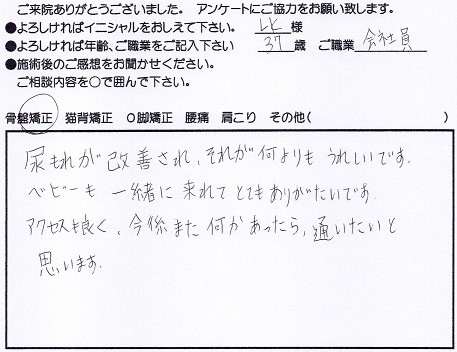 ご来院ありがとうございました。 アンケートにご協力をお願い致します。
●よろしければイニシャルをおしえて下さい。 様
●よろしければ年齢、ご職業をご記入下さい 37 歳 ご職業 会社員
●施術後のご感想をお聞かせください。
ご相談内容を○で囲んで下さい。
骨盤矯正 猫背矯正 O脚矯正 腰痛 肩こり その他( )
尿もれが改善され、それが何よりもうれしいです。
ベビーも一緒に来れてとてもありがたいです。
アクセスも良く、今後また何かあったら、通いたいと
思います。